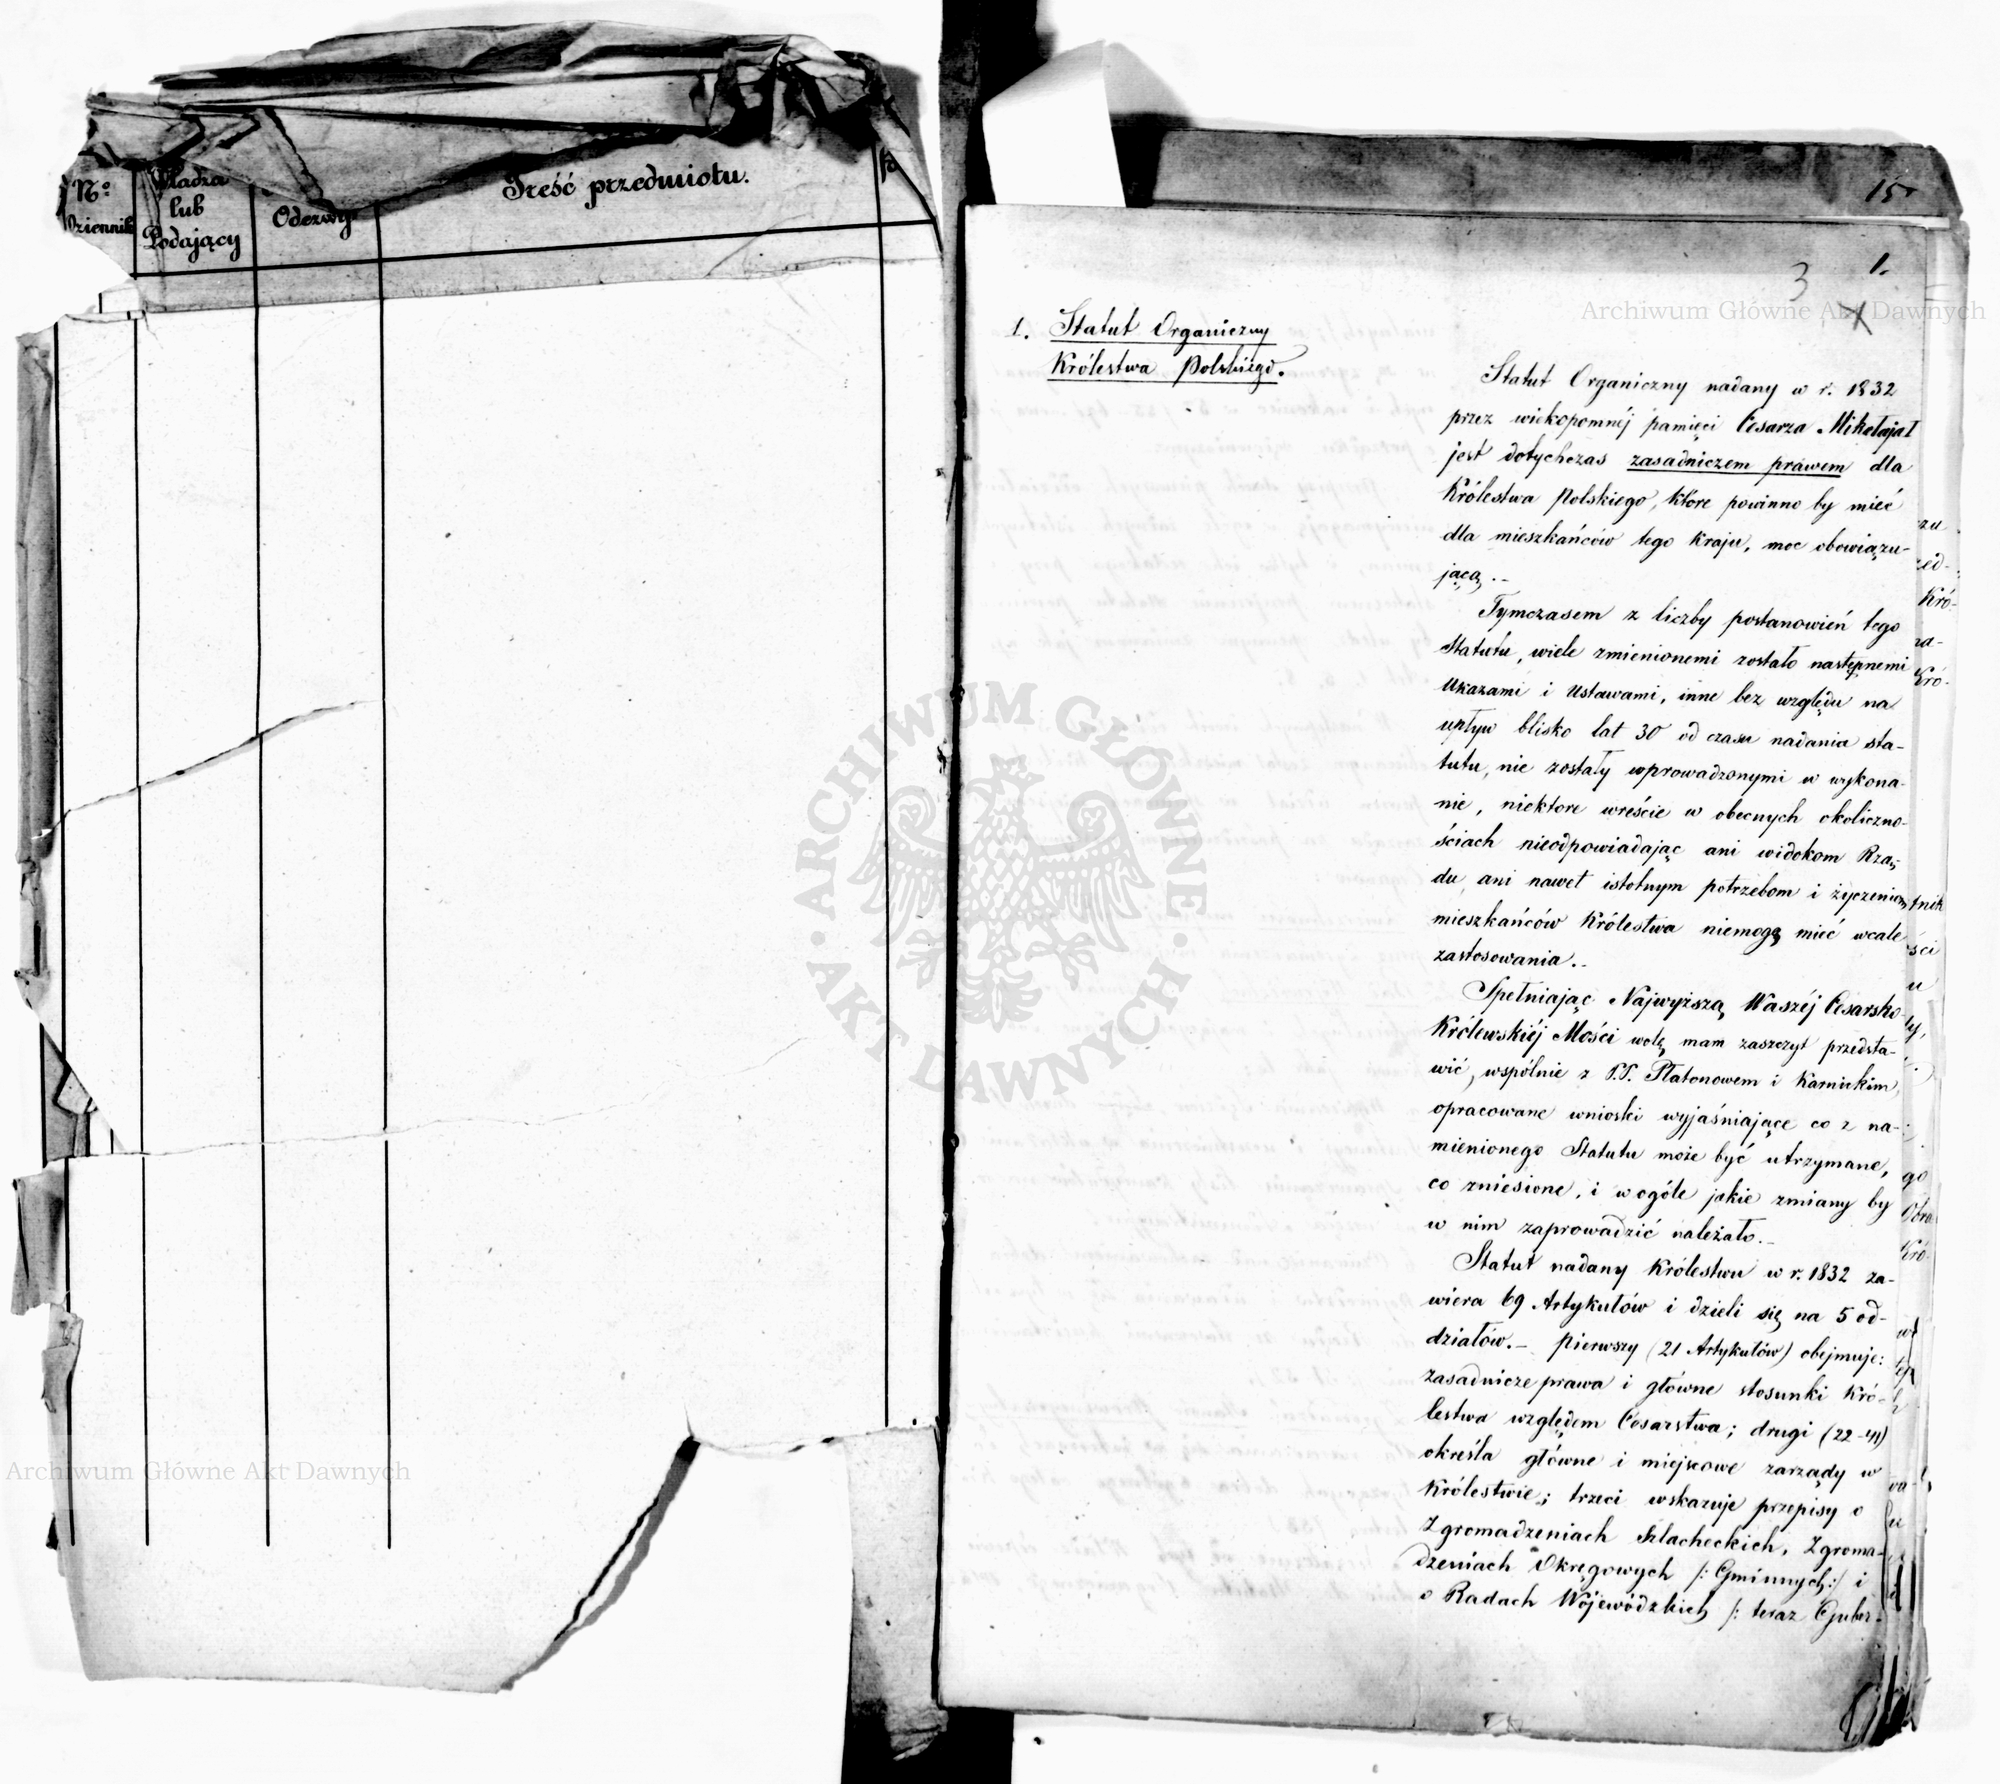 No
Dziennik
Władza
lub
Podający
Odezwy
Treść przedmiotu.
15
1.
3
Archiwum Główne Akt Dawnych
1. Statut Organiczny
Królestwa Polskiego.
Statut Organiczny nadany w r. 1832
przez wiekopomnéj pamięci Cesarza Mikołaja I
jest dotychczas zasadniczem prawem dla
Królestwa Polskiego, które powinno by mieć
dla mieszkańców tego kraju, moc obowiązu-
jącą.-
Tymczasem z liczby postanowień tego
Statutu, wiele zmienionemi zostało następnemi
Ukazami i Ustawami, inne bez względu na
upływ blisko lat 30 od czasu nadania sta-
tutu, nie zostały wprowadzonymi w wykona-
nie, niektore wreście w obecnych okoliczno-
ściach nieodpowiadając ani widokom Rzą-
du ani nawet istotnym potrzebom i życzeniom
mieszkańców Królestwa niemogą mieć wcale
zastosowania.-
Spełniając Najwyższą Waszéj Cesarsko
Królewskiéj Mości wolę mam zaszczyt przedsta-
wić, wspólnie z P.P. Płatonowem i Karnickim,
opracowane wnioski wyjaśniające co z na-
mienionego Statutu może być utrzymane,
co zniesione, i w ogóle jakie zmiany by
w nim zaprowadzić należało.-
Statut nadany Królestwu w r. 1832 za-
wiera 69 Artykułów i dzieli się na 5 od-
działów.- Pierwszy (21 Artykułów) obejmuje:
zasadnicze prawa i główne stosunki Kró-
lestwa względem Cesarstwa; drugi (22-41)
określa główne i miejscowe zarządy w
Królestwie; trzeci wskazuje przepisy o
Zgromadzeniach Szlacheckich, Zgroma-
dzeniach Okręgowych /: Gminnych:/ i
o Radach Wojewódzkich /: teraz Guber-
ARCHIWUM GŁÓWNE
AKT DAWNYCH
Archiwum Główne Akt Dawnych